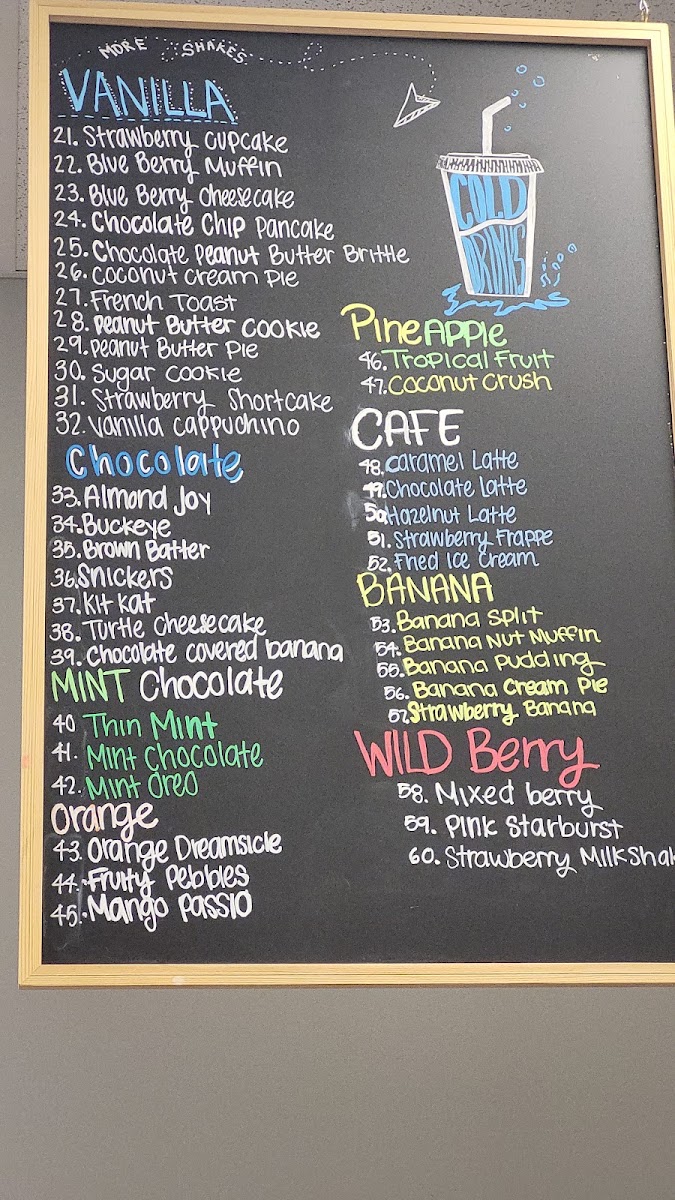 MORE SHAKES
VANILLA
21. Strawberry Cupcake
22. Blue Berry Muffin
23. Blue Berry Cheesecake
24. Chocolate Chip Pancake
25. Chocolate Peanut Butter Brittle
26. Coconut Cream Pie
27. French Toast
28. Peanut Butter Cookie
29. Peanut Butter Pie
30. Sugar Cookie
31. Strawberry Shortcake
32. Vanilla Cappuchino
Chocolate
33. Almond Joy
34. Buckeye
35. Brown Batter
36. Snickers
37. Kit Kat
38. Turtle Cheesecake
39. Chocolate covered banana
MINT Chocolate
40 Thin Mint
41. Mint Chocolate
42. Mint Oreo
Orange
43. Orange Dreamsicle
44. Fruity Pebbles
45. Mango Passio
COLD
DRINKS
PineAPPle
46. Tropical Fruit
47. Coconut Crush
CAFE
48. Caramel Latte
49. Chocolate Latte
50 Hazelnut Latte
51. Strawberry Frappe
52. Fried Ice Cream
BANANA
53. Banana Split
54. Banana Nut Muffin
55. Banana Pudding
56. Banana Cream Pie
57. Strawberry Banana
WILD Berry
58. Mixed berry
59. Pink Starburst
60. Strawberry MilkShak